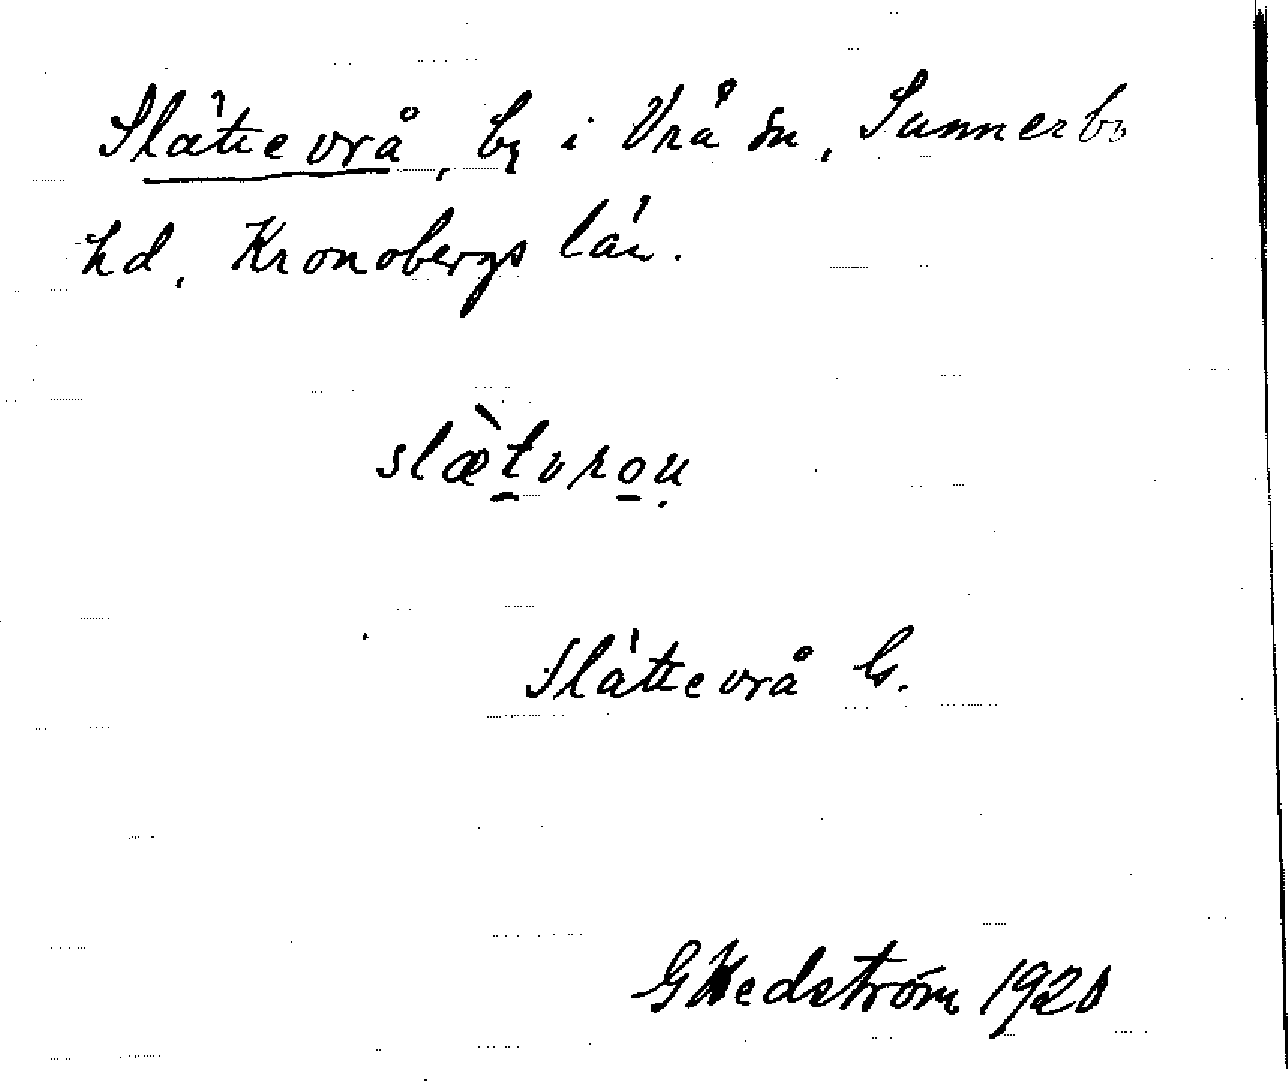 Slättevrå, by i Vrå sn, Sunnerbo
hd, Kronobergs län.
slæ̀tvrou̥
Slättevrå G.
GHedström 1920